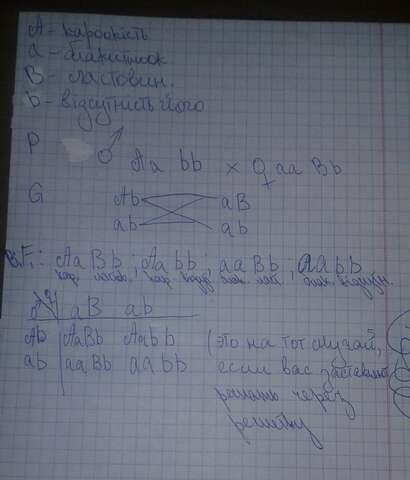 A - кароокість
a - блакитноок
B - ластовин.
b - відсутність його
P ♂ Aa bb × ♀ aa Bb
G Ab aB
ab ab
F₁: AaBb; Aabb; aaBb; aabb
кар. ласт. кар. відсу. блак. ласт. блак. відсутн.
♂\♀ aB ab
Ab AaBb Aabb (это на тот случай,
ab aaBb aabb если вас заставляют
решать через
решетку